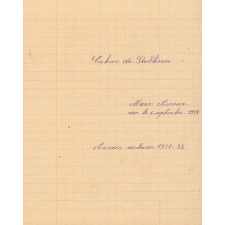 Cahier de Problèmes
Marie
née le septembre 1918
Années scolaires 1931-32